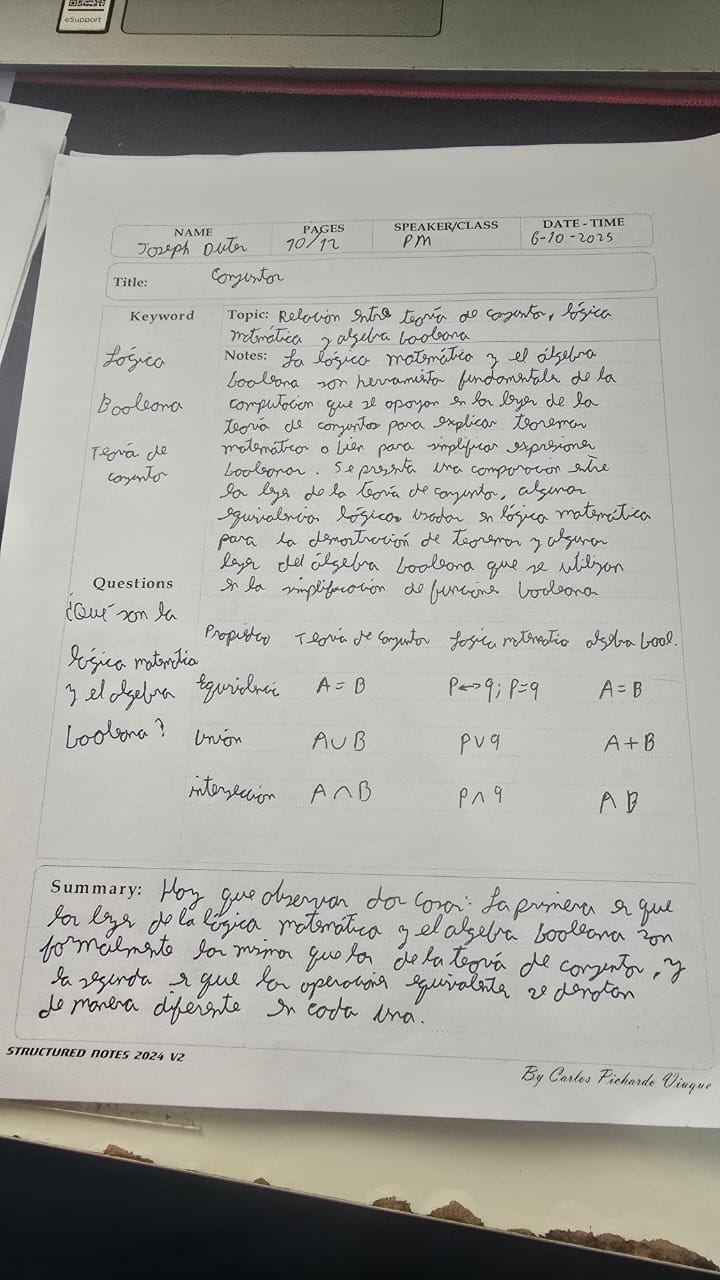 eSupport
NAME PAGES SPEAKER/CLASS DATE - TIME
Joseph 10/12 PM 6-10-2025
Title: Conjuntos
Keyword
Topic: Relación entre teoría de conjuntos, lógica
matemática y algebra booleana
Lógica
Booleana
Teoría de
conjuntos
Notes: La lógica matemática y el álgebra
booleana son herramientas fundamentales de la
computación que se apoyan en las leyes de la
teoría de conjuntos para explicar teoremas
matemáticos o bien para simplificar expresiones
booleanas. Se presenta una comparación entre
las leyes de la teoría de conjuntos, algunas
equivalencias lógicas usadas en lógica matemática
para la demostración de teoremas y algunas
leyes del álgebra booleana que se utilizan
en la simplificación de funciones booleanas
Questions
¿Qué son la
lógica matemática
y el algebra
booleana?
Propiedad Teoría de conjuntos Logica matematica algebra bool.
Equivalencia A = B P↔q; P≡q A = B
Unión A∪B P∨q A + B
intersección A∩B P∧q A B
Summary: Hay que observar dos cosas: La primera es que
las leyes de la lógica matemática y el algebra booleana son
formalmente las mismas que las de la teoría de conjuntos, y
la segunda es que las operaciones equivalentes se denotan
de manera diferente en cada una.
STRUCTURED NOTES 2024 V2
By Carlos Pichardo Viuque